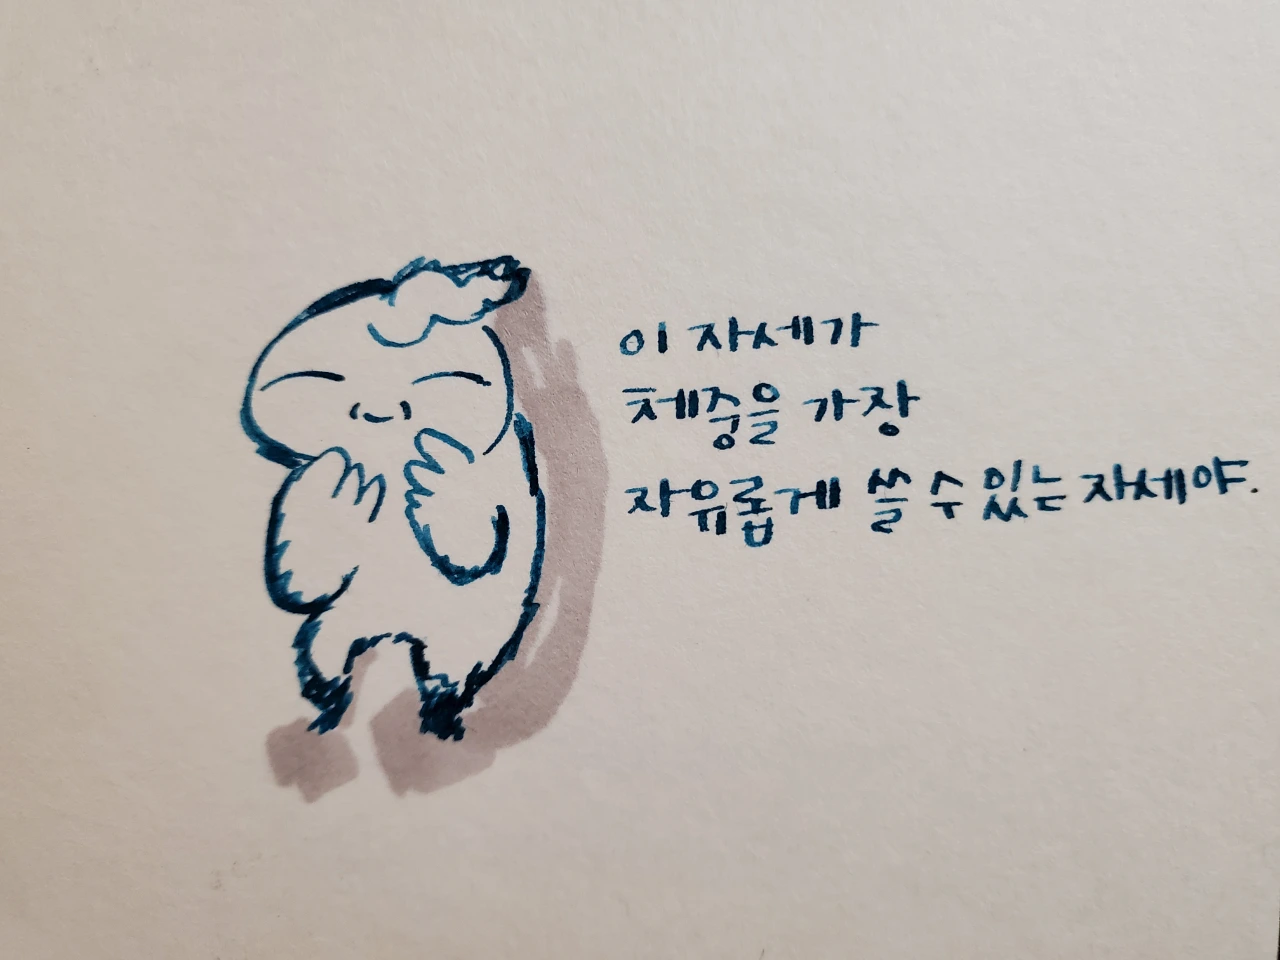 이 자세가
체중을 가장
자유롭게 쓸 수 있는 자세야.